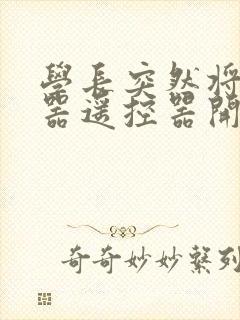 學長突然將
器遥控器開
奇奇妙妙繫列